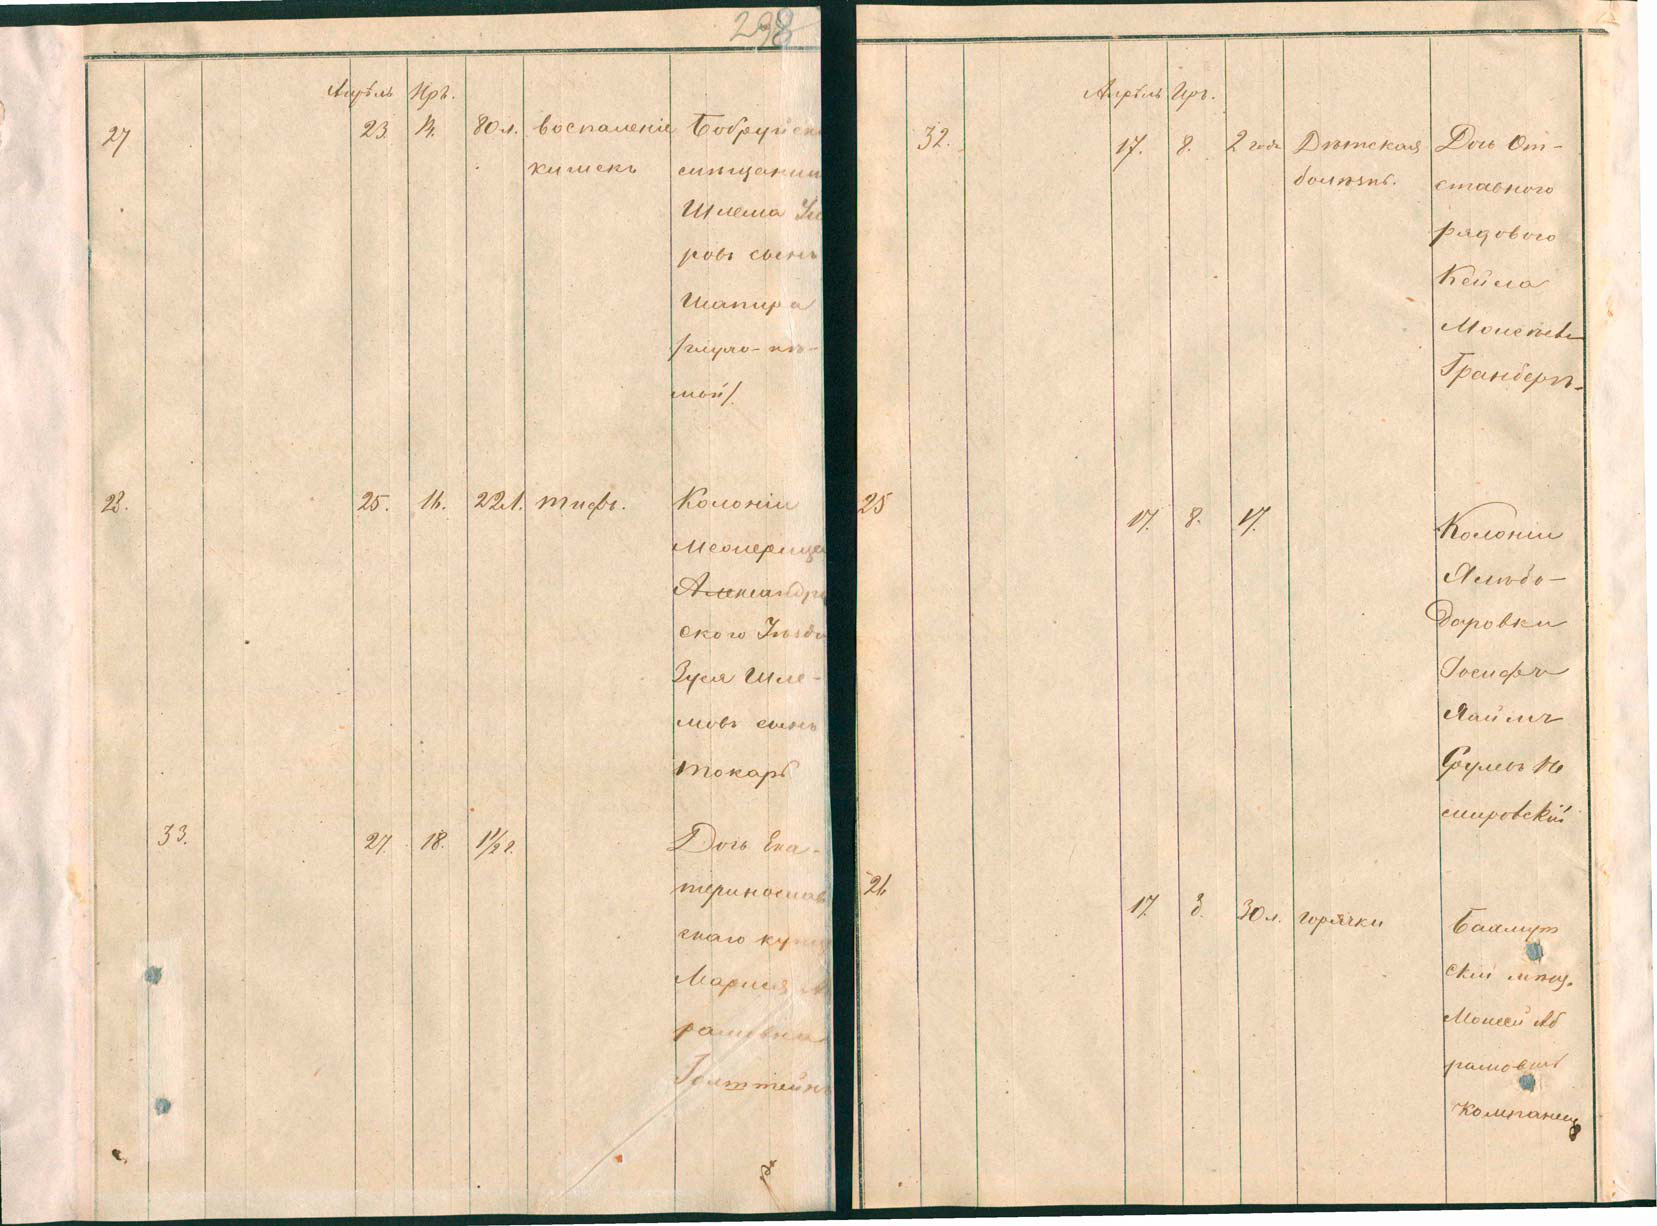 298
Апрѣль Ир.
27 23. 14. 80 л. воспаленіе Бобруйскі
кишекъ мѣщанин
Шлема
ровъ сынъ
Шапира
/глухо-нѣ-
мой/.
28. 25. 16. 22 л. тифъ. Колоніи
Межерица
Александров
скаго Уѣзда
Зуся Шле-
мовъ сынъ
Токарь
33. 27. 18. 1 1/2 г. Дочь Ека-
теринослав
скаго купца
Марія А
рамовна
Голштейнъ
Апрѣль Ир.
32. 17. 8. 2 года Дѣтская Дочь От-
болѣзнь. ставного
рядового
Кейла
Моисѣев
Гранбергъ-
25 17. 8. 17. Колоніи
даровки
Іосифъ
Хаимъ
Сруль Не
мировскій
26 17. 8. 30 л. горячки Бахмут
скій мѣщ.
Моисей Аб
рамовичъ
Компанеец